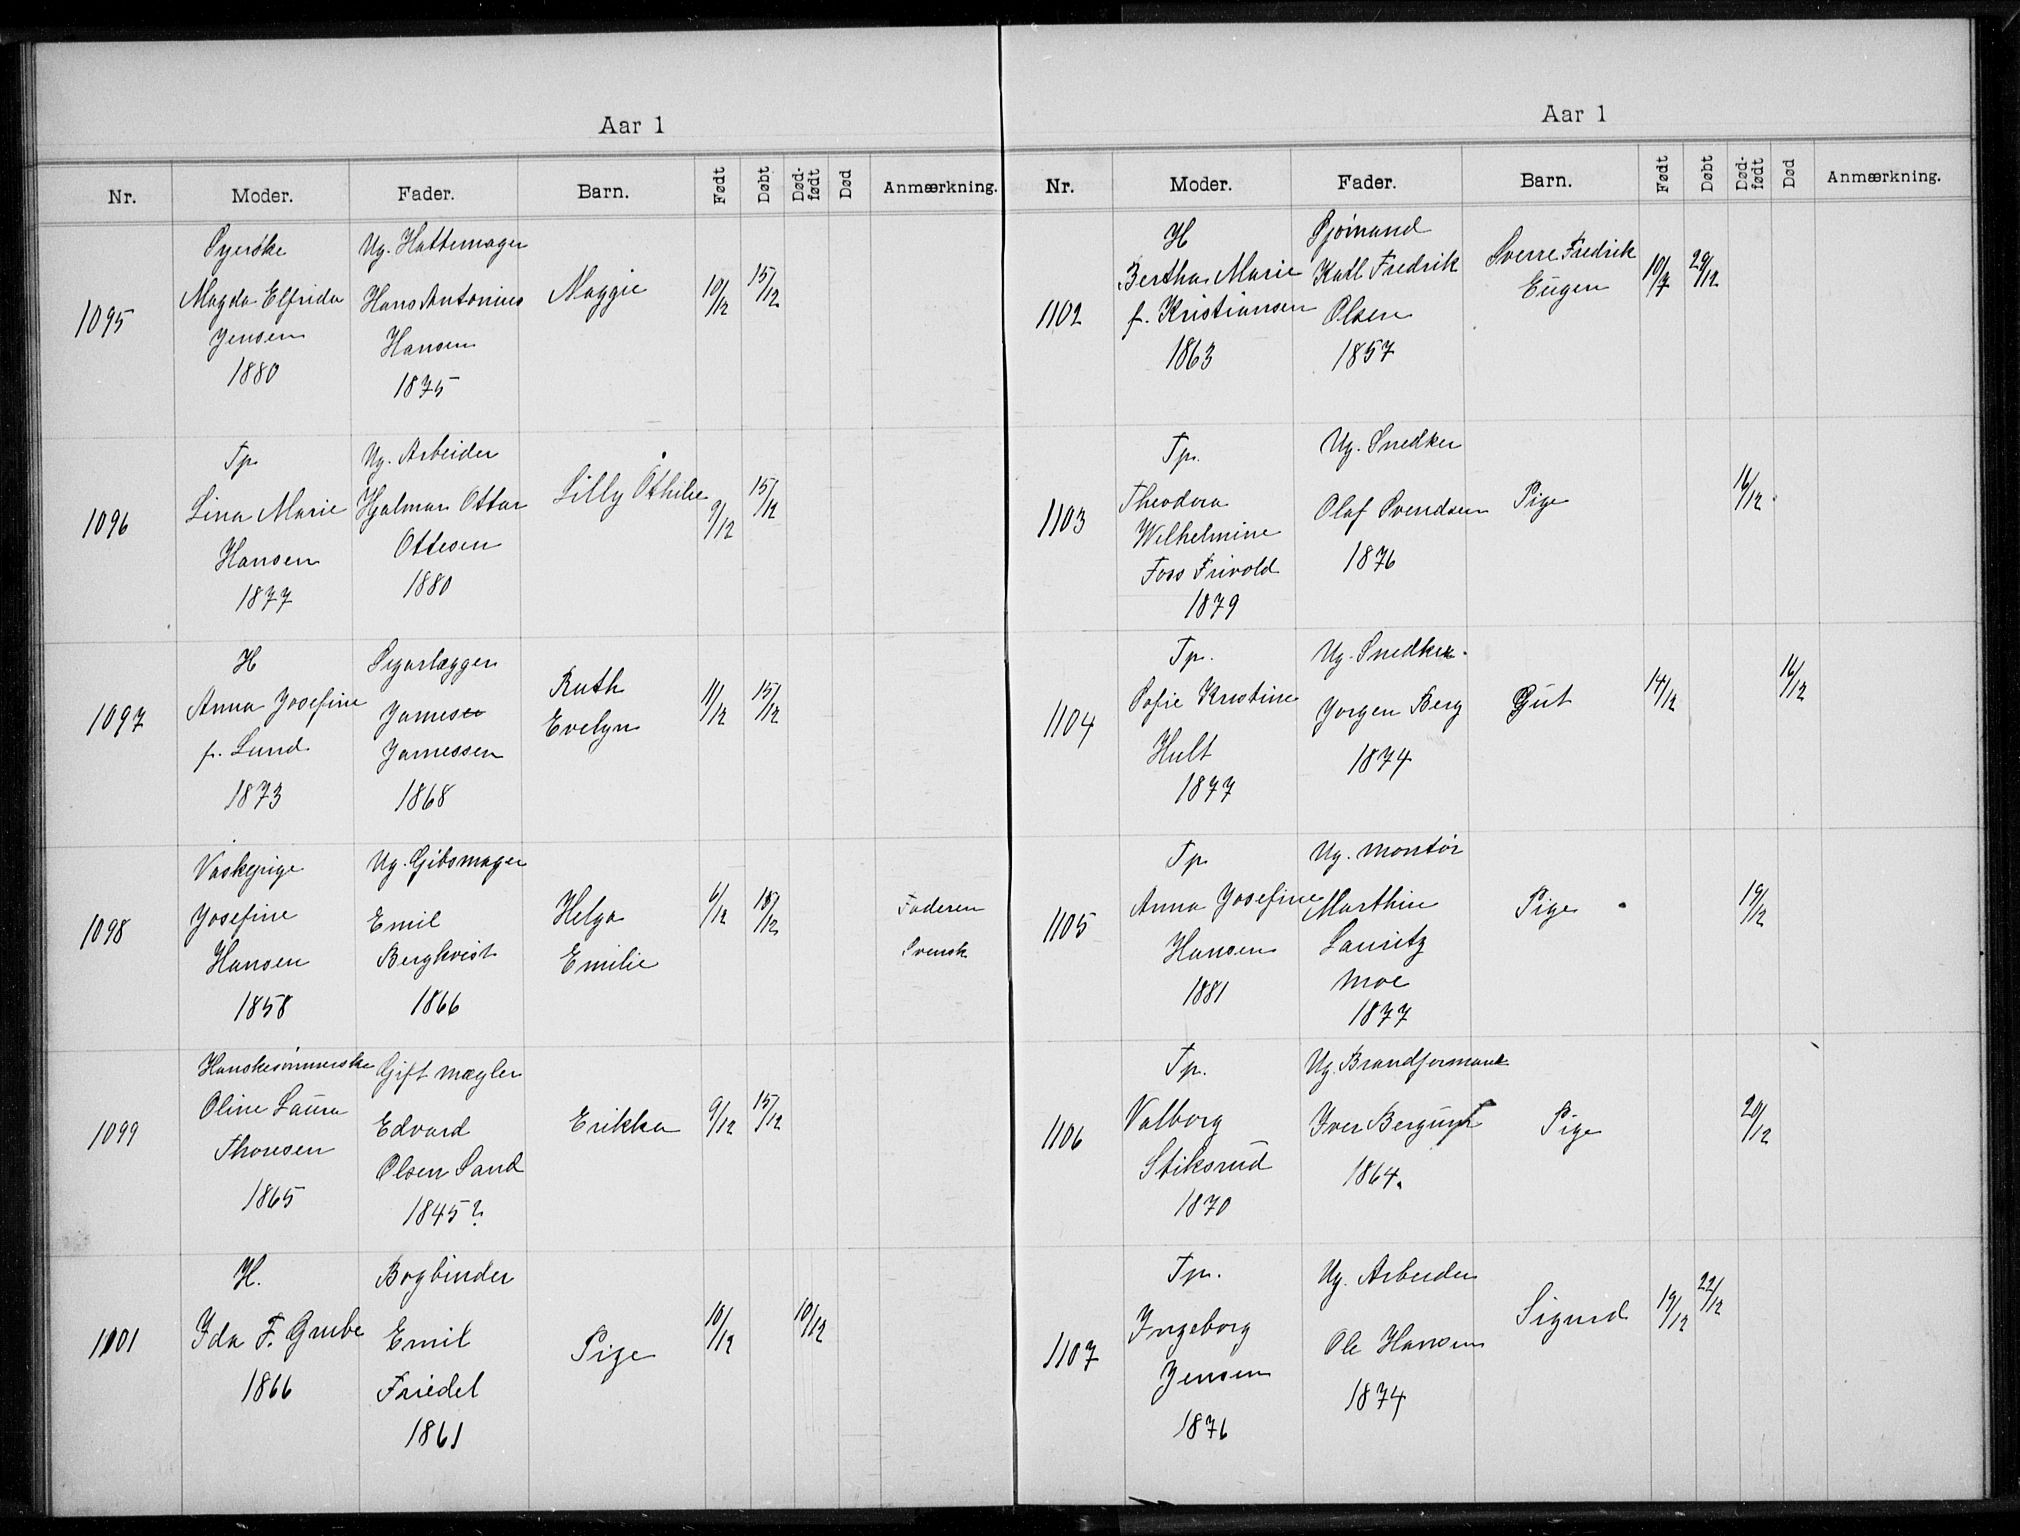 Aar 1
Nr. Moder. Fader. Barn. Født Døbt Død-født Død Anmærkning.
1095
Syerske
Magda Elfrida
Jensen
1880
Ug. Hattemager
Hans Antonius
Hansen
1875
Maggie
10/12 15/12
1096
Tp.
Lina Marie
Hansen
1877
Ug. Arbeider
Hjalmar Ottar
Ottesen
1880
Lilly Othilie
9/12 15/12
1097
H
Anna Josefine
f. Lund
1873
Sigarlægger
James
Jamessen
1868
Ruth
Evelyn
11/12 15/12
1098
Vaskepige
Josefine
Hansen
1858
Ug. Gibsmager
Emil
Bergkvist
1866
Helga
Emilie
6/12 18/12
Faderen
Svensk
1099
Hanskesømmerske
Oline Laura
Thoresen
1865
Gift mægler
Edvard
Olsen Sand
1845?
Erikka
9/12 15/12
1101
H.
Ida F. Grube
1866
Bogbinder
Emil
Friedel
1861
Pige
10/12 10/12
Aar 1
Nr. Moder. Fader. Barn. Født Døbt Død-født Død Anmærkning.
1102
H
Bertha Marie
f. Kristiansen
1863
Sjømand
Karl Fredrik
Olsen
1857
Sverre Fredrik
Eugen
10/7 29/12
1103
Tp.
Theodora
Wilhelmine
Foss Frivold
1879
Ug. Snedker
Olaf Svendsen
1876
Pige
16/12
1104
Tp.
Sofie Kristine
Hult
1877
Ug. Snedker
Jørgen Berg
1874
Gut
14/12 16/12
1105
Tp
Anna Josefine
Hansen
1881
Ug. montør
Marthin
Lauritz
Moe
1877
Pige
19/12
1106
Tp.
Valborg
Stiksrud
1870
Ug. Brandformand
Iver
1864.
Pige
20/12
1107
Tp.
Ingeborg
Jensen
1876
Ug. Arbeider
Ole Hansen
1874
Sigurd
19/12 22/12